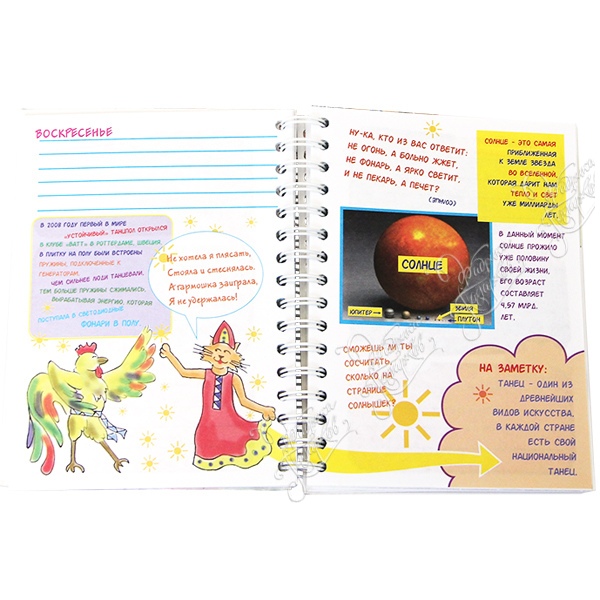 ВОСКРЕСЕНЬЕ
В 2008 ГОДУ ПЕРВЫЙ В МИРЕ
"УСТОЙЧИВЫЙ" ТАНЦПОЛ ОТКРЫЛСЯ
В КЛУБЕ «ВАТТ» В РОТТЕРДАМЕ, ШВЕЦИЯ.
В ПЛИТКУ НА ПОЛУ БЫЛИ ВСТРОЕНЫ
ПРУЖИНЫ, ПОДКЛЮЧЕННЫЕ К
ГЕНЕРАТОРАМ.
ЧЕМ СИЛЬНЕЕ ЛЮДИ ТАНЦЕВАЛИ,
ТЕМ БОЛЬШЕ ПРУЖИНЫ СЖИМАЛИСЬ,
ВЫРАБАТЫВАЯ ЭНЕРГИЮ, КОТОРАЯ
ПОСТУПАЛА В СВЕТОДИОДНЫЕ
ФОНАРИ В ПОЛУ.
Не хотела я плясать,
Стояла и стеснялась.
А гармошка заиграла,
Я не удержалась!
НУ-КА, КТО ИЗ ВАС ОТВЕТИТ:
НЕ ОГОНЬ, А БОЛЬНО ЖЖЕТ,
НЕ ФОНАРЬ, А ЯРКО СВЕТИТ,
И НЕ ПЕКАРЬ, А ПЕЧЕТ?
(СОЛНЦЕ)
СОЛНЦЕ - ЭТО САМАЯ
ПРИБЛИЖЕННАЯ
К ЗЕМЛЕ ЗВЕЗДА
ВО ВСЕЛЕННОЙ,
КОТОРАЯ ДАРИТ НАМ
ТЕПЛО И СВЕТ
УЖЕ МИЛЛИАРДЫ
ЛЕТ.
СОЛНЦЕ
ЮПИТЕР
ЗЕМЛЯ
ПЛУТОН
В ДАННЫЙ МОМЕНТ
СОЛНЦЕ ПРОЖИЛО
УЖЕ ПОЛОВИНУ
СВОЕЙ ЖИЗНИ.
ЕГО ВОЗРАСТ
СОСТАВЛЯЕТ
4,57 МЛРД.
ЛЕТ.
СМОЖЕШЬ ЛИ ТЫ
СОСЧИТАТЬ,
СКОЛЬКО НА
СТРАНИЦЕ
СОЛНЫШЕК?
НА ЗАМЕТКУ:
ТАНЕЦ - ОДИН ИЗ
ДРЕВНЕЙШИХ
ВИДОВ ИСКУССТВА.
В КАЖДОЙ СТРАНЕ
ЕСТЬ СВОЙ
НАЦИОНАЛЬНЫЙ
ТАНЕЦ.